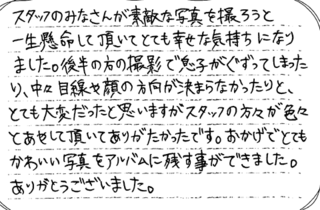 スタッフのみなさんが素敵な写真を撮ろうと
一生懸命して頂いてとても幸せな気持ちになり
ました。後半の方の撮影で息子がぐずってしまった
り、中々目線や顔の方向が決まらなかったりと、
とても大変だったと思いますがスタッフの方々が色々
とあせして頂いてありがたかったです。おかげでとても
かわいい写真をアルバムに残す事ができました。
ありがとうございました。